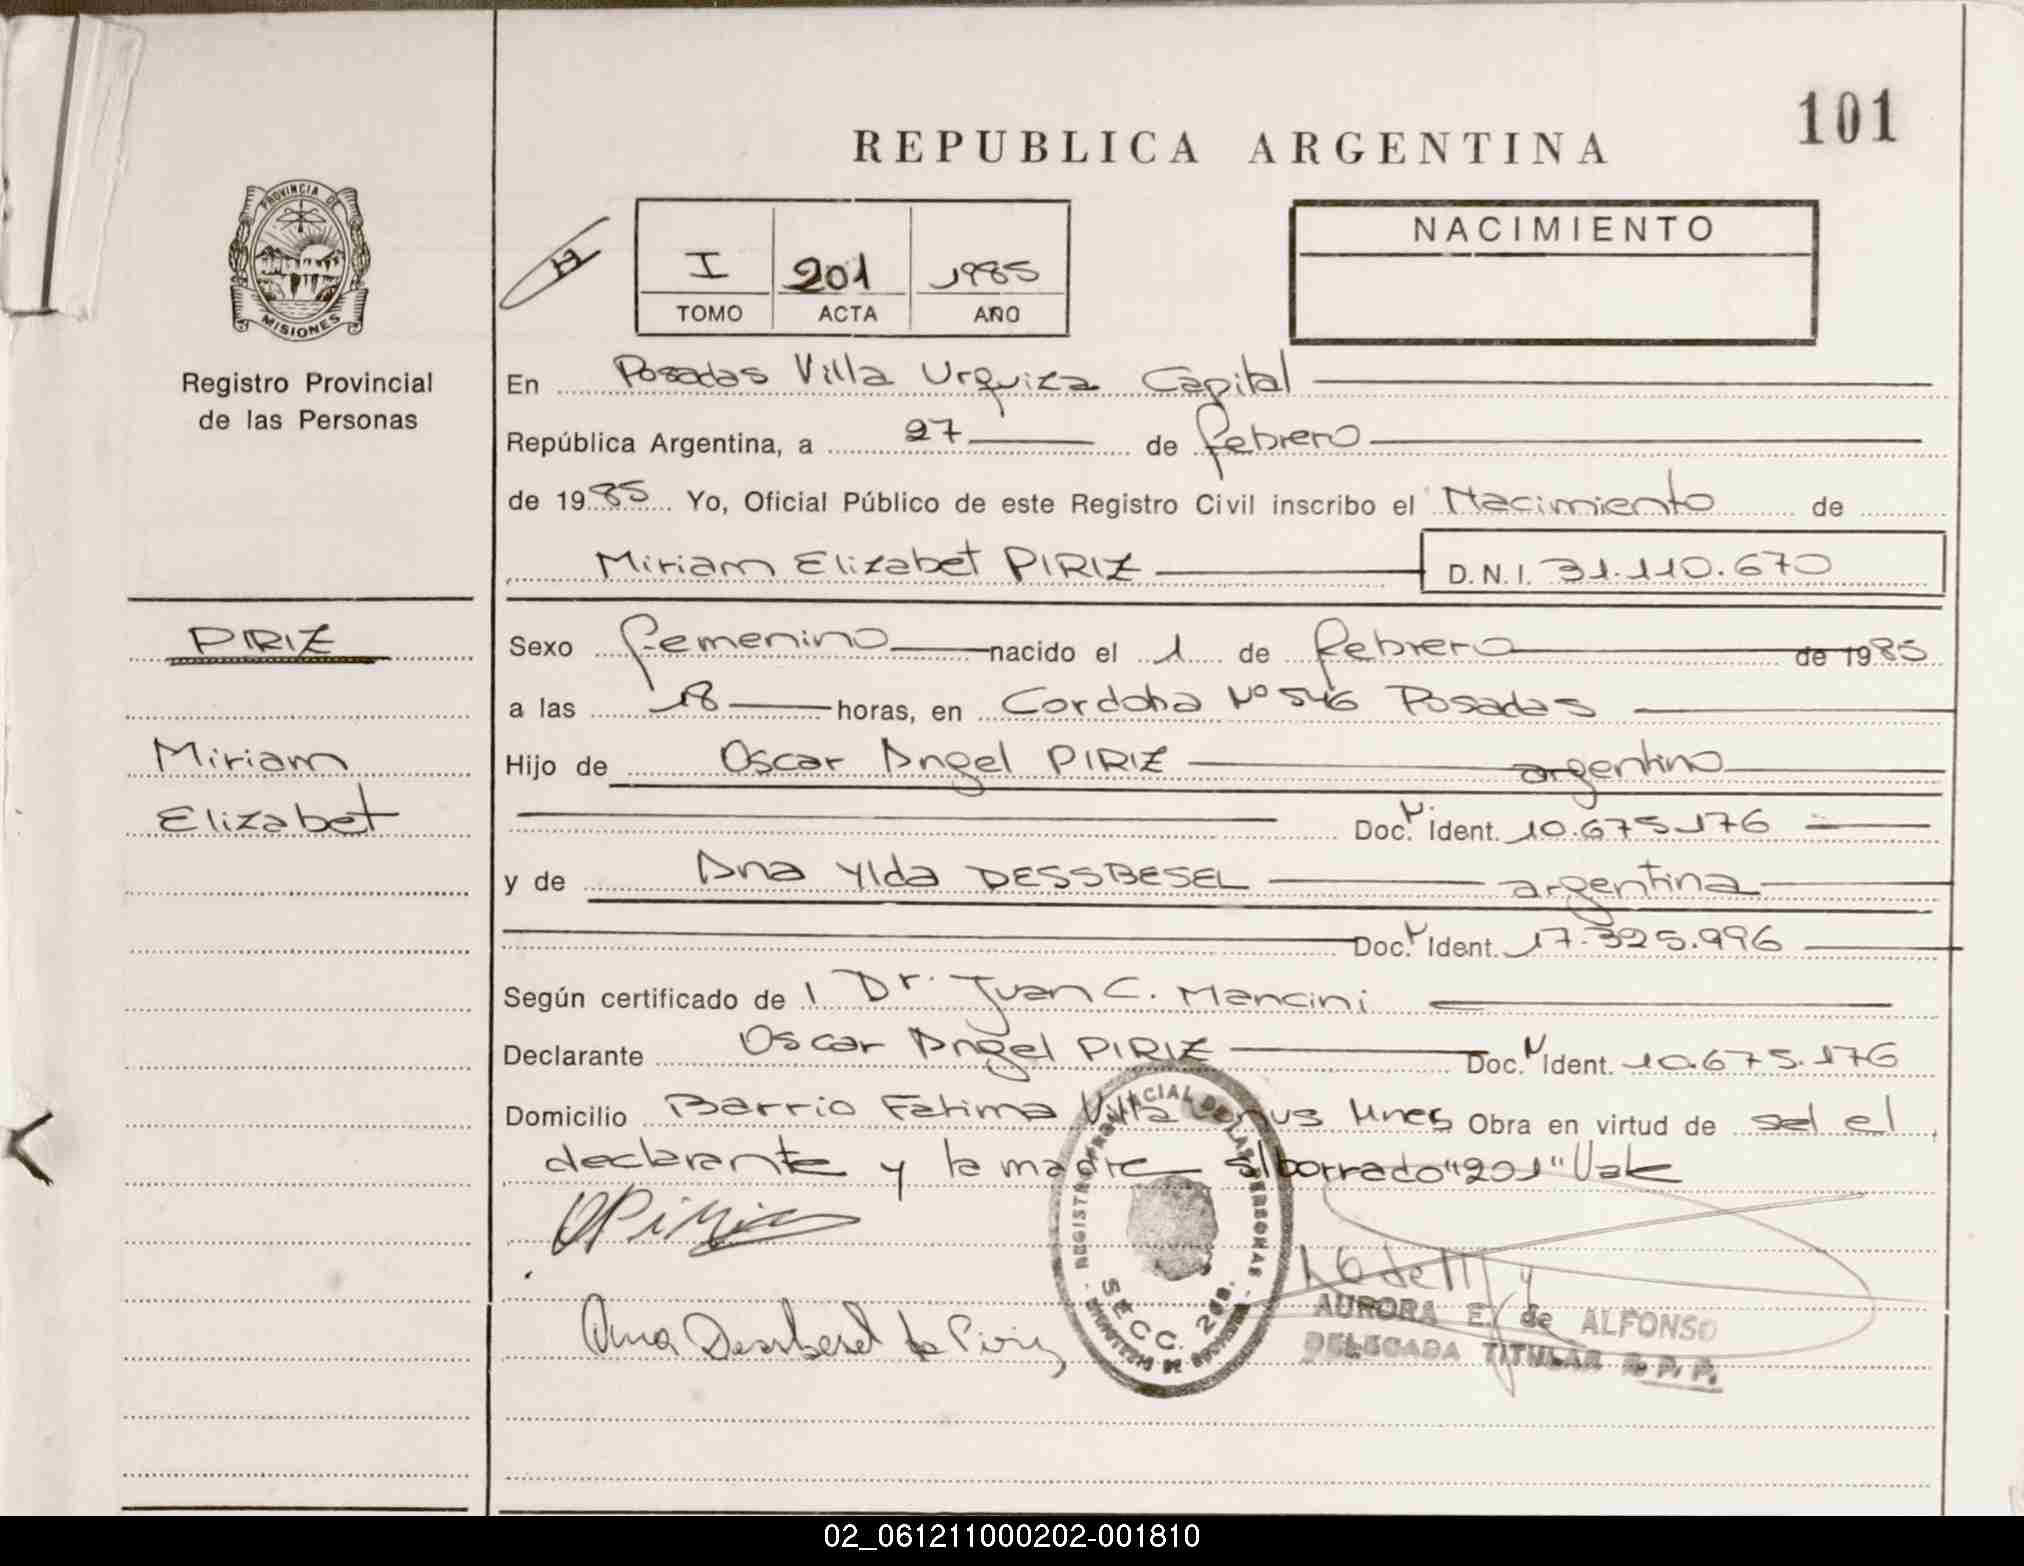 101
REPUBLICA ARGENTINA
PROVINCIA DE
MISIONES
Registro Provincial
de las Personas
I 201 1985
TOMO ACTA AÑO
NACIMIENTO
En Posadas Villa Urquiza Capital
República Argentina, a 27 de febrero
de 1985 Yo, Oficial Público de este Registro Civil inscribo el Nacimiento de
Miriam Elizabet PIRIZ D.N.I. 31.110.670
PIRIZ
Miriam
Elizabet
Sexo femenino nacido el 1 de febrero de 1985
a las 18 horas, en Cordoba Nº 546 Posadas
Hijo de Oscar Angel PIRIZ argentino
Doc. N Ident. 10.675.176
y de Ana Ylda DESSBESEL argentina
Doc. N Ident. 17.325.996
Según certificado de Dr. Juan C. Mancini
Declarante Oscar Angel PIRIZ Doc. N Ident. 10.675.176
Domicilio Barrio Fatima Villa Mnes Obra en virtud de sel el
declarante y la madre s/borrado "201" Vale
Ana Dessbesel de Piriz
REGISTRO PROVINCIAL DE LAS PERSONAS
SECC.
AURORA E. de ALFONSO
DELEGADA TITULAR R. P. P.
02_061211000202-001810